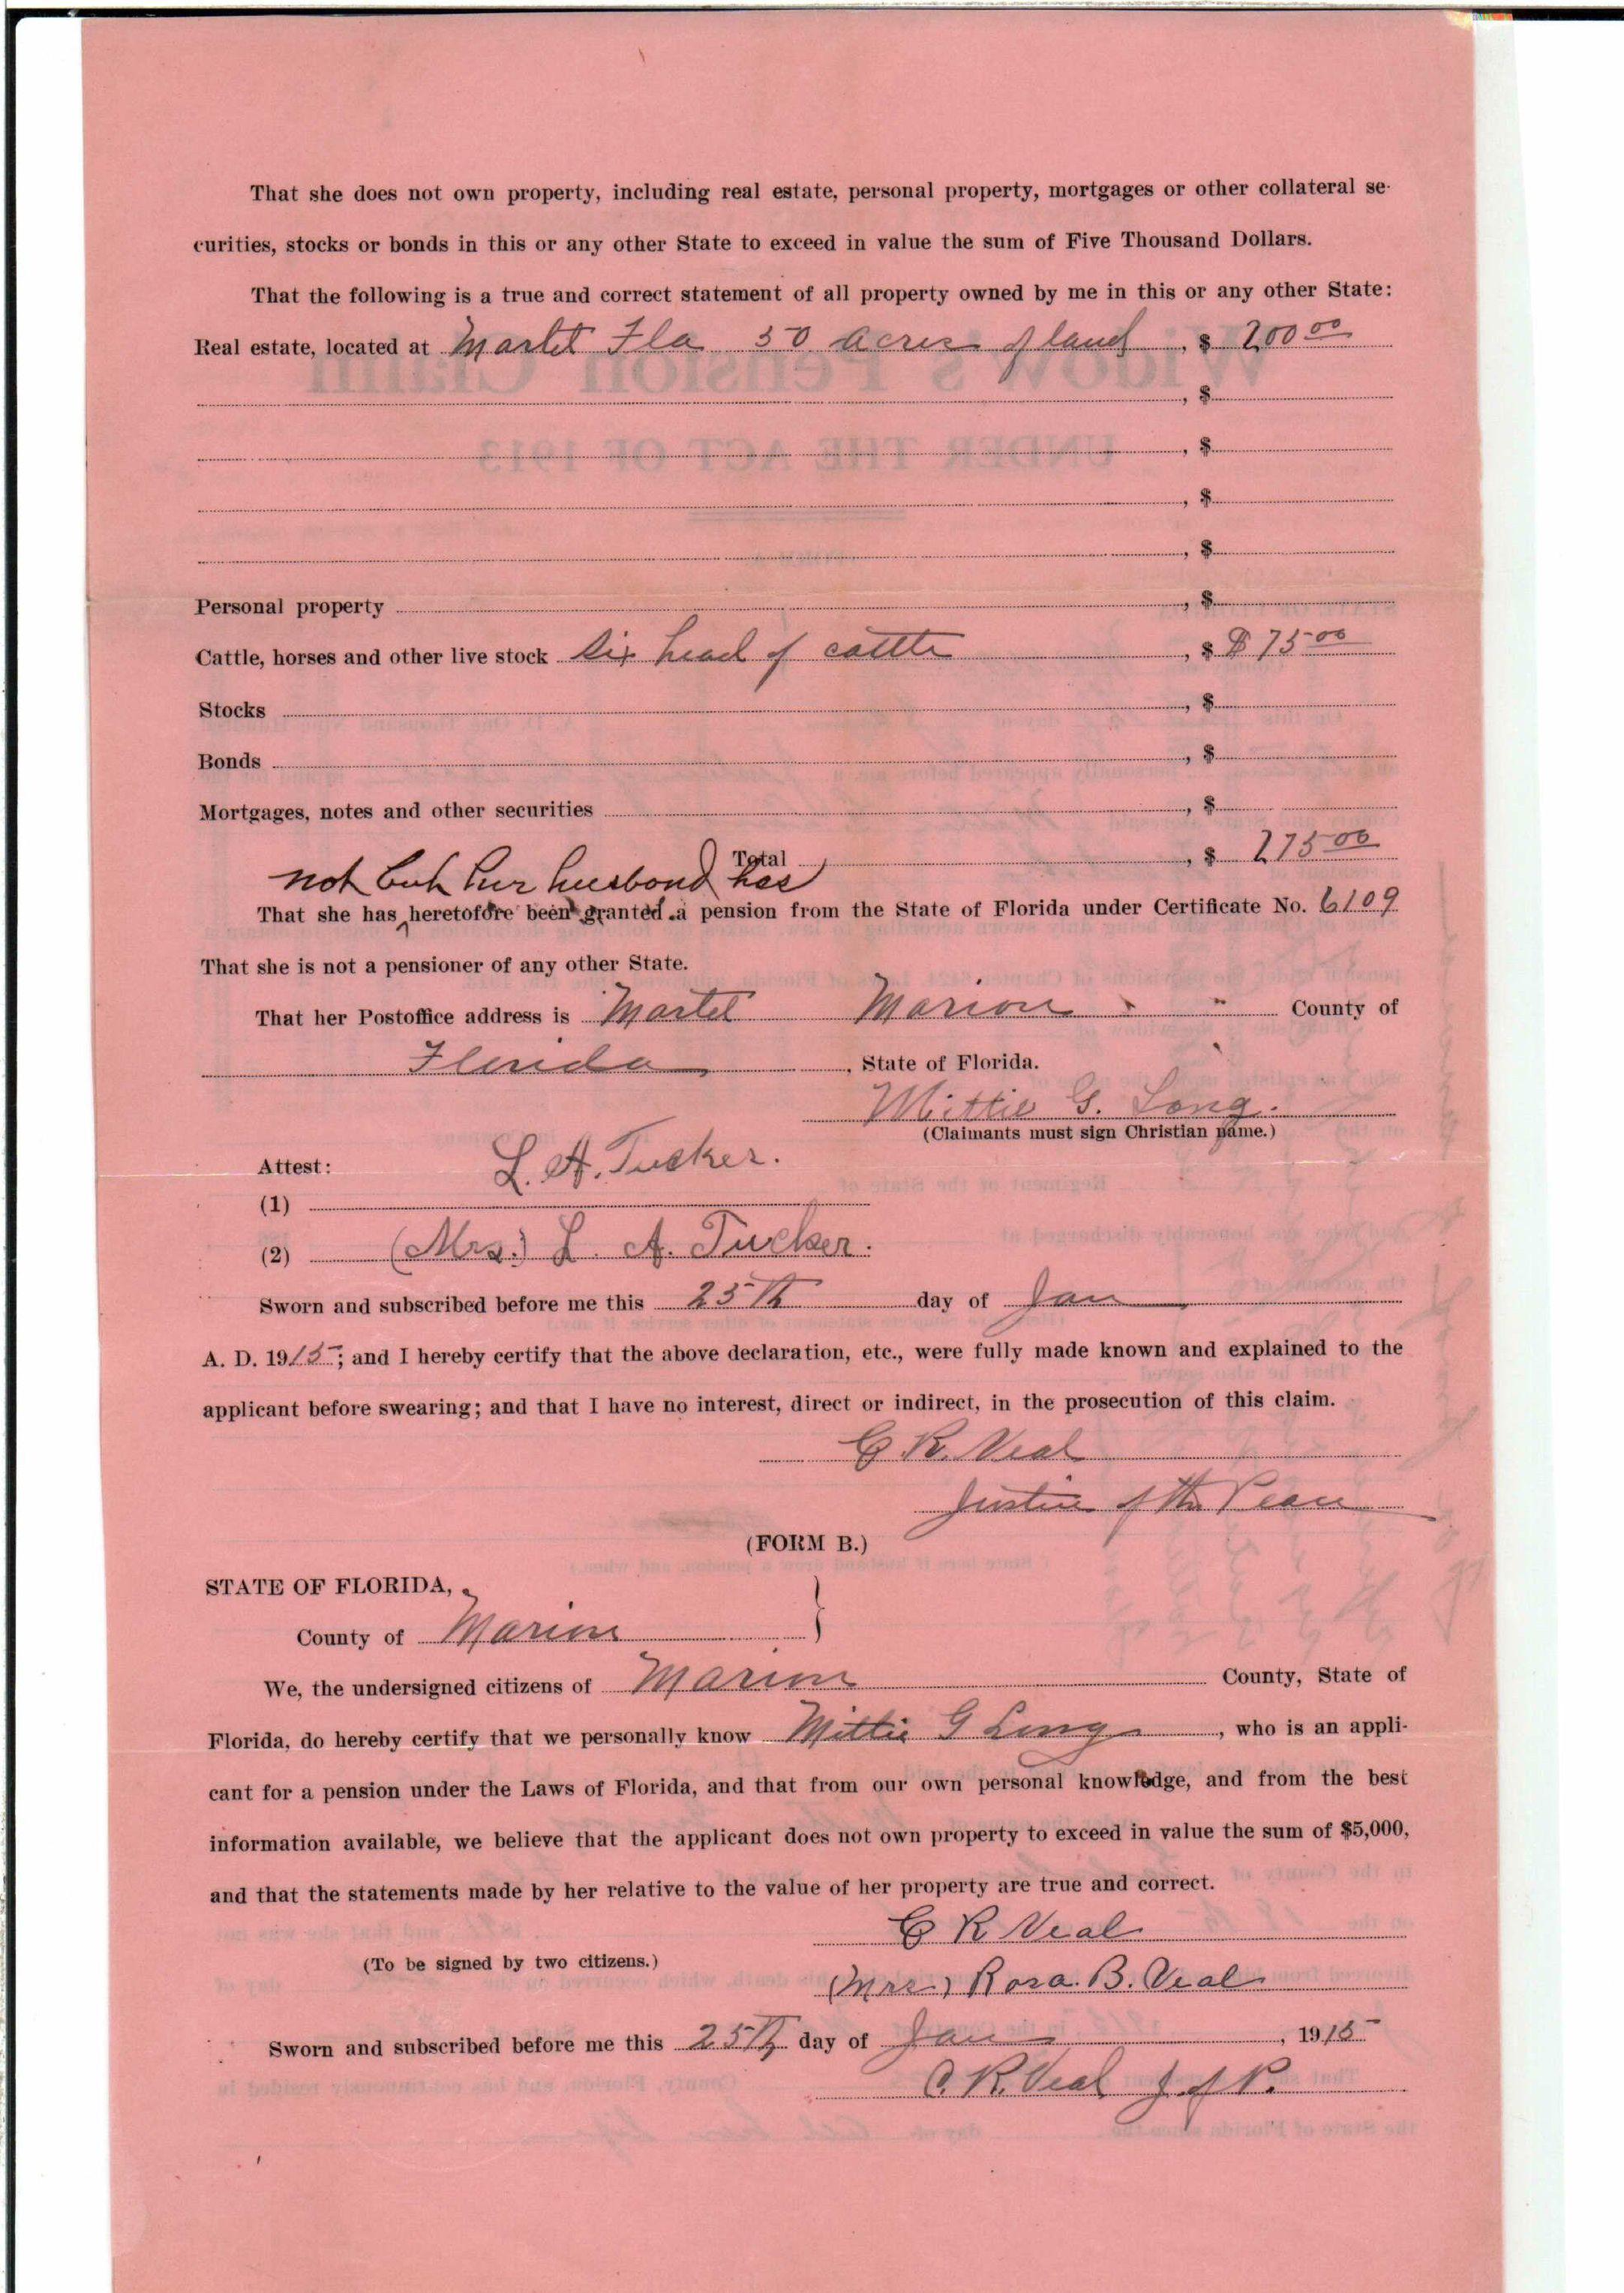 That she does not own property, including real estate, personal property, mortgages or other collateral se-
curities, stocks or bonds in this or any other State to exceed in value the sum of Five Thousand Dollars.
That the following is a true and correct statement of all property owned by me in this or any other State:
Real estate, located at Martel Fla 50 acres of land, $ 200 00
, $
, $
, $
, $
Personal property , $
Cattle, horses and other live stock Six head of cattle , $ $ 75 00
Stocks , $
Bonds , $
Mortgages, notes and other securities , $
Total , $ 275 00
not but her husbond has
That she has heretofore been granted a pension from the State of Florida under Certificate No. 6109
That she is not a pensioner of any other State.
That her Postoffice address is Martel Marion County of
Florida , State of Florida.
Mittie G. Long.
(Claimants must sign Christian name.)
Attest:
L. A. Tucker.
(1)
(2) (Mrs.) L. A. Tucker.
Sworn and subscribed before me this 25th day of Jan
A. D. 1915; and I hereby certify that the above declaration, etc., were fully made known and explained to the
applicant before swearing; and that I have no interest, direct or indirect, in the prosecution of this claim.
C R. Veal
Justice of the Peace
(FORM B.)
STATE OF FLORIDA,
County of Marion }
We, the undersigned citizens of Marion County, State of
Florida, do hereby certify that we personally know Mittie G Long , who is an appli-
cant for a pension under the Laws of Florida, and that from our own personal knowledge, and from the best
information available, we believe that the applicant does not own property to exceed in value the sum of $5,000,
and that the statements made by her relative to the value of her property are true and correct.
C R Veal
(To be signed by two citizens.)
(Mrs) Rosa. B. Veal
Sworn and subscribed before me this 25th day of Jan , 1915
C. R. Veal J. of P.